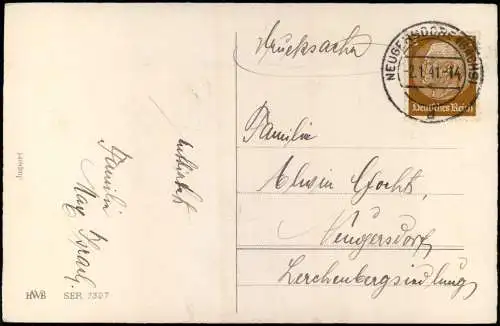 Drucksache
NEUGERSDORF (SACHS)
-2.1.41.-14
a
Deutsches Reich
3
Familie
Alwin
Neugersdorf,
Lerchenbergsiedlung
Familie
Max
Import
HWB SER 7397